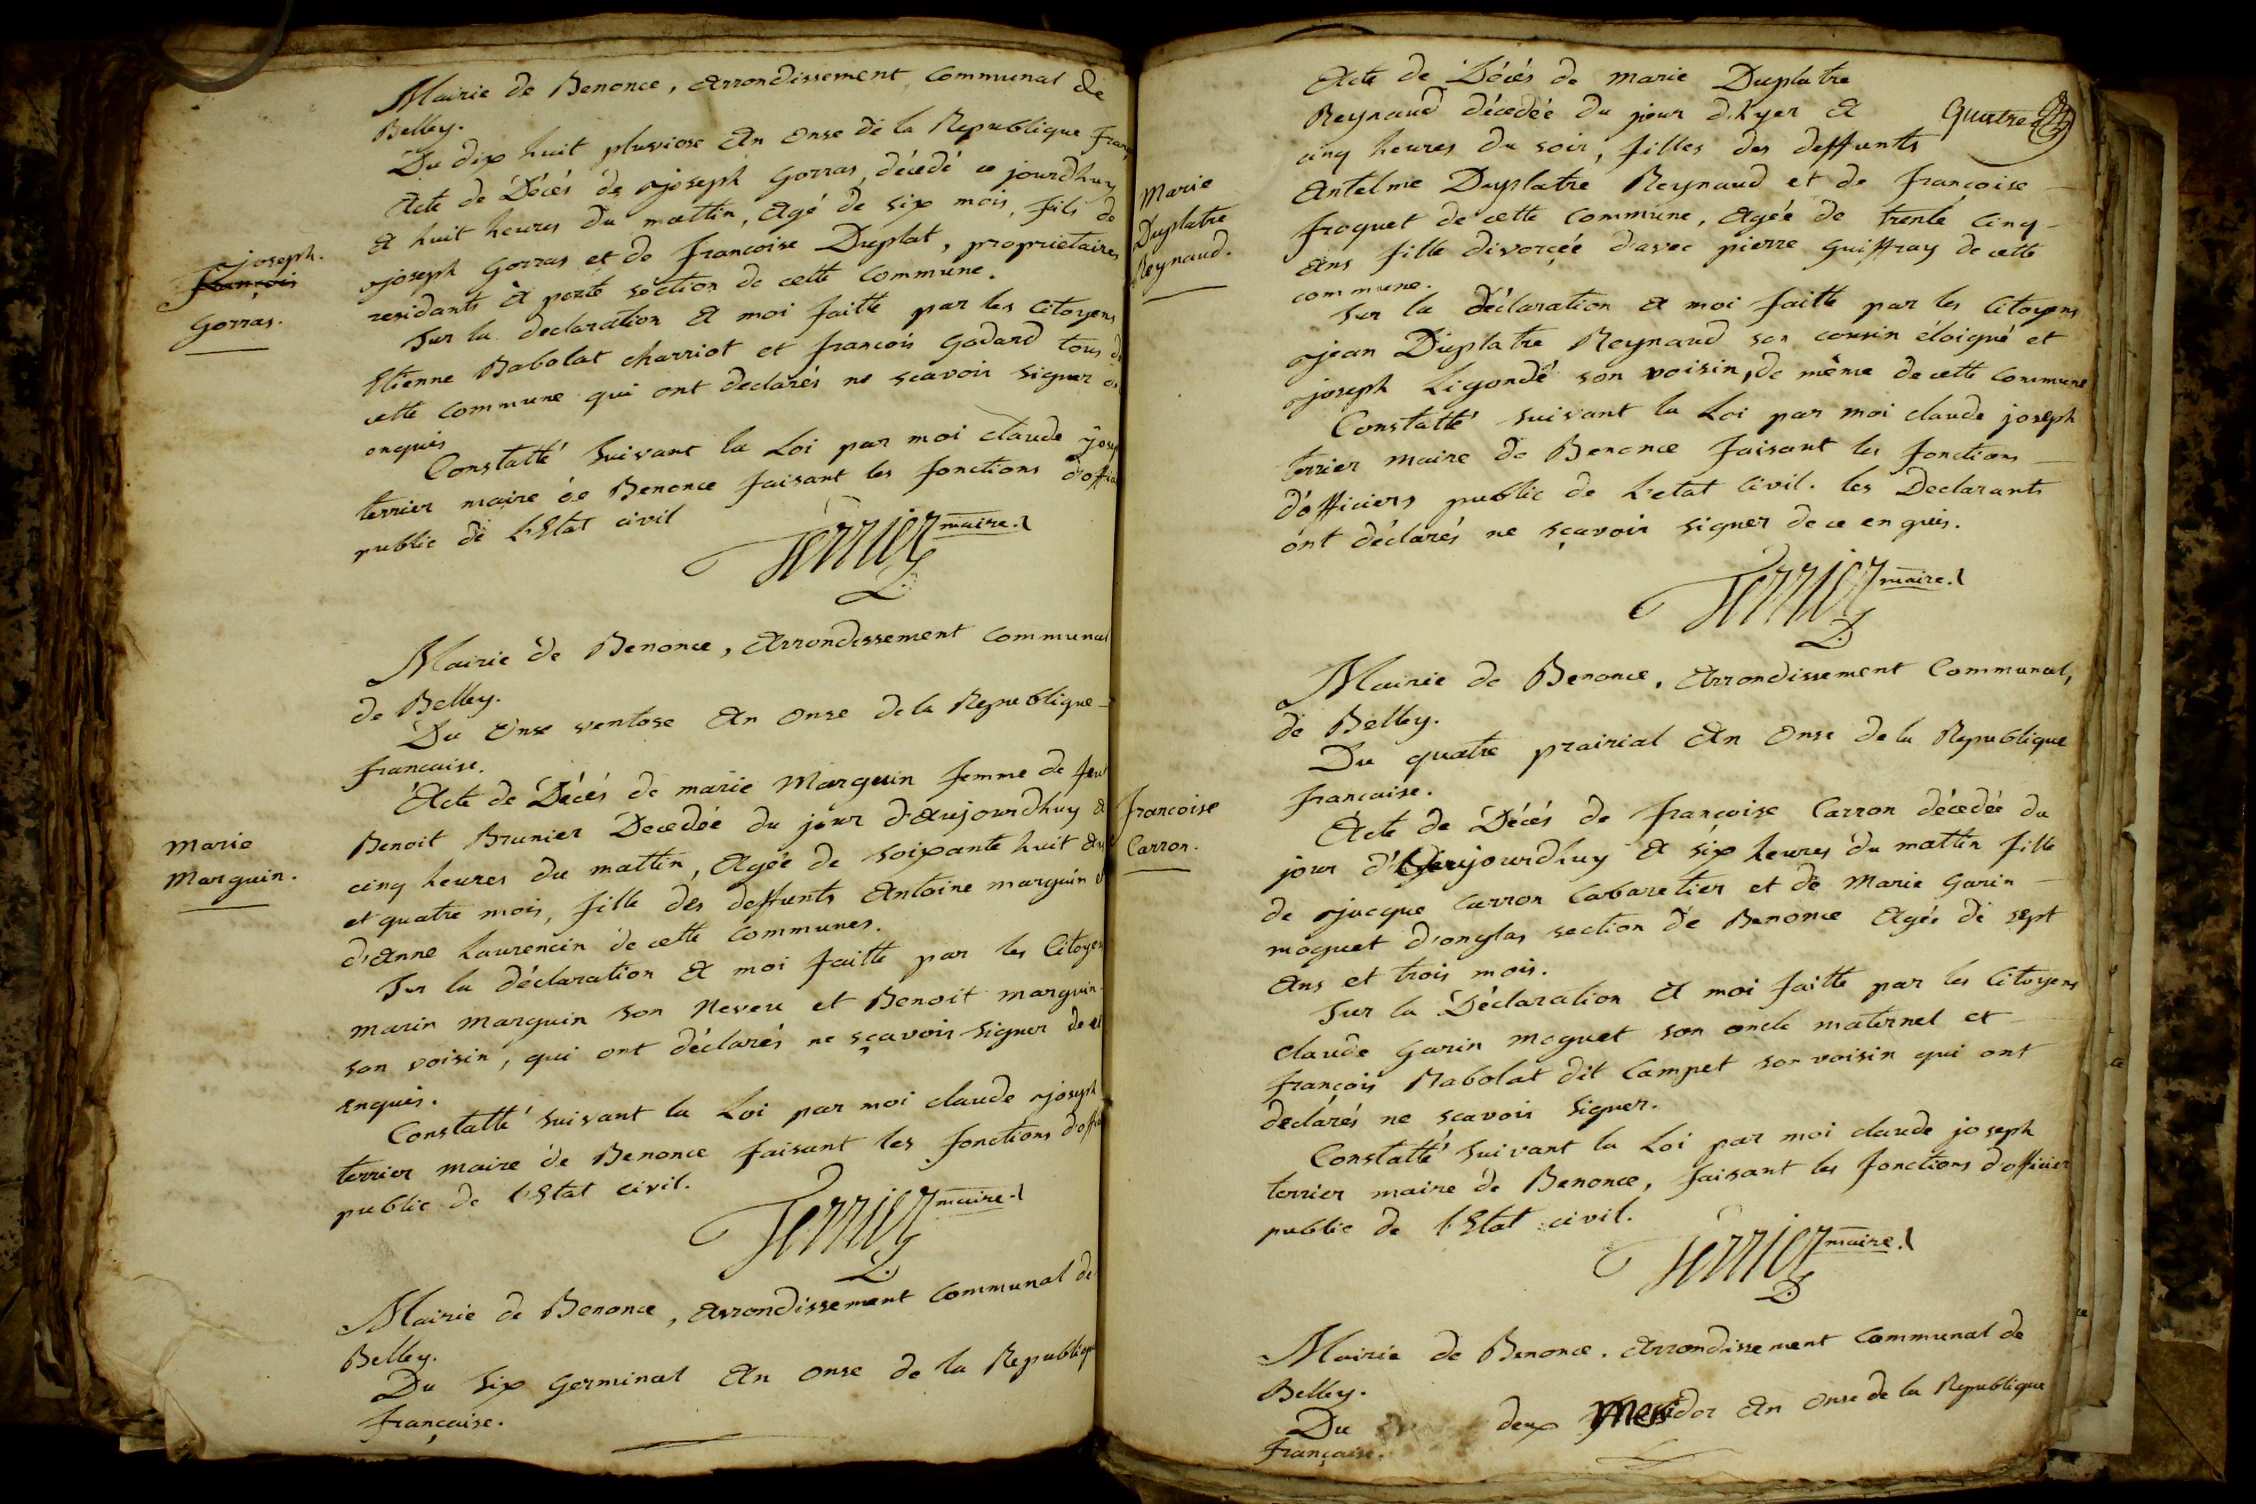 Mairie de Benonce, Arrondissement Communal de
Belley.
Du dix huit pluviose An onse de la Republique fran
Acte de Décés de joseph Gorras, décedé ce jourdhuy
A huit heures du mattin, Agé de six mois, fils de
joseph Gorras et de francoise Duplat, proprietaires
residants A porte section de cette Commune.
Sur la declaration A moi faitte par les Citoyens
Etienne Babolat charriot et francois Godard tous de
cette Commune qui ont declarés ne scavoir signer
enquis
Constatté suivant la Loi par moi claude jose
terrier maire de Benonce faisant les fonctions d'offi
public de L'Etat civil
Terrier maire.
joseph.
françois
Gorras.
Mairie de Benonce, Arrondissement Communal
de Belley.
Du Onse ventose An onse de la Republique
francaise.
Acte de Décés de marie Marguin femme de feu
Benoit Brunier Decedée du jour d'Aujourdhuy A
cinq heures du mattin, Agée de soixante huit An
et quatre mois, fille des deffunts Antoine marguin
d'Anne Laurencin de cette Communes.
Sur la déclaration A moi faitte par les Citoyen
marin marguin son Neveu et Benoit marguin
son voisin, qui ont déclarés ne sçavoir signer de ce
enquis.
Constatté suivant la Loi par moi claude joseph
terrier maire de Benonce faisant les fonctions d'offi
public de l'Etat civil.
Terrier maire.
marie
Marguin.
Mairie de Benonce, Arrondissement Communal de
Belley.
Du six Germinal An onse de la Republiqu
française.
Acte de Décés de marie Duplatre
Reynaud décedée du jour d'hyer A
Quatre
cinq heures du soir, filles des deffunts
Antelme Duplatre Reynaud et de françoise
froquet de cette Commune, Agée de trente cinq
Ans fille divorçée d'avec pierre Guiffray de cette
commune.
Sur la déclaration A moi faitte par les Citoyens
jean Duplatre Reynaud son cousin éloigné et
joseph Ligondé son voisin, de même de cette Commune
Constatté suivant la Loi par moi claude joseph
terrier maire de Benonce faisant les fonctions
d'officiers public de L'etat Civil. les Declarants
ont déclarés ne sçavoir signer de ce enquis.
Terrier maire.
Marie
Duplatre
Reynaud.
Mairie de Benonce, Arrondissement Communal,
de Belley.
Du quatre prairial An Onse de la Republique
francaise.
Acte de Décés de françoise Carron décedée du
jour d'Aujourdhuy A six heures du mattin fille
de jacque Carron Cabaretier et de Marie Garin
moquet d'onglas section de Benonce Agée de sept
Ans et trois mois.
Sur la Déclaration A moi faitte par les Citoyens
claude Garin moquet son oncle maternel et
françois Babolat dit Campet son voisin qui ont
declarés ne scavoir signer.
Constatté suivant la Loi par moi claude joseph
terrier maire de Benonce, faisant les fonctions d'officier
public de l'Etat civil.
Terrier maire.
francoise
Carron.
Mairie de Benonce. Arrondissement Communal de
Belley.
Du deux Messidor An Onse de la Republique
française.